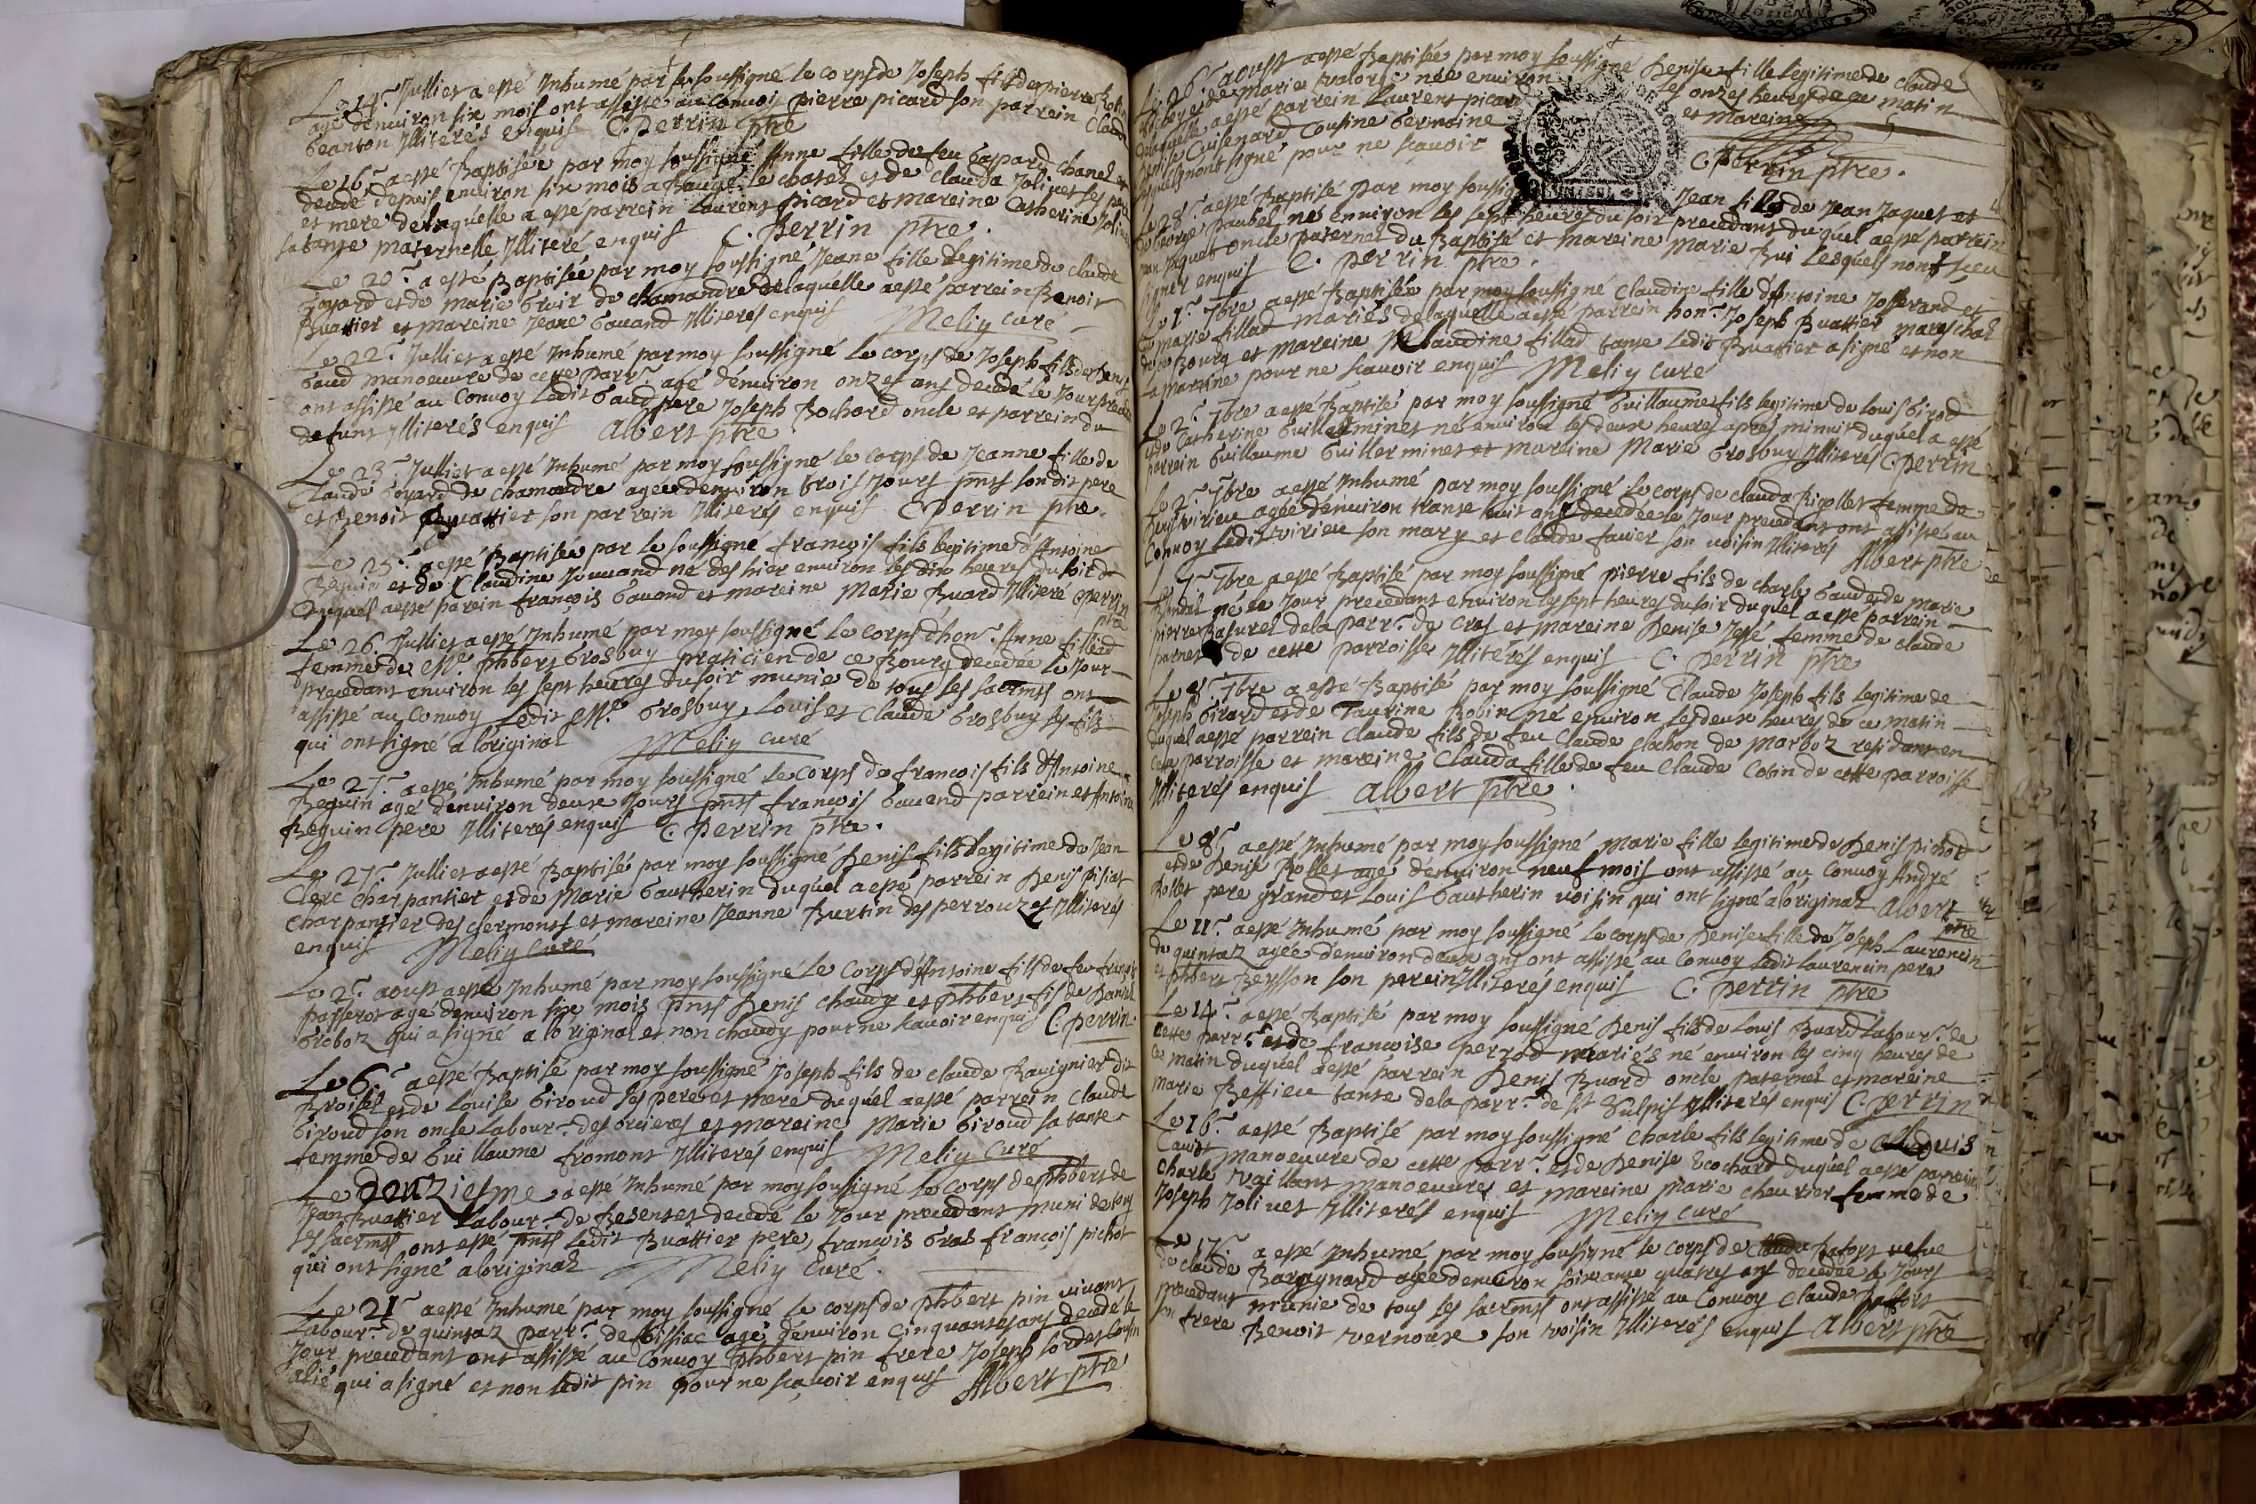 Le 14.e Julliet a esté Inhumé par le soussigné le corps de Joseph fils de pierre
agé d'environ six mois ont assisté au Convoy pierre picard son parrein Claude
Geanton Illiterés enquis C. Perrin ptre
Le 16.e a esté Baptisée par moy soussigné Anne fille de feu Gaspard Chanel
decedé depuis environ six mois a Baugé le chatel et de Clauda Jolivet ses pere
et mere de laquelle a esté parrein Laurent picard et mareine Catherine Jolivet
sa tante maternelle Illiteré enquis C. Perrin ptre.
Le 20.e a esté Baptisée par moy soussigné Jeane fille Legitime de claude
Goyard et de Marie Gruir de chamandre de laquelle a esté parrein Benoit
Buattier et mareine Jeane Gauand Illiteres enquis Meliy curé
Le 22.e Julliet a esté Inhumé par moy soussigné le corps de Joseph fils de
Gaud manoeuvre de cette parr.e agé d'environ onzes ans decedé le Jour
ont assisté au Convoy Ledit Gaud pere Joseph Bochard oncle et parrein du
defunt Illiterés enquis Albert ptre
Le 23.e Julliet a esté Inhumé par moy soussigné le corps de Jeanne fille de
Claude Goyard de chamandre agée d'environ trois Jours pnts sondit pere
et Benoit Buattier son parrein Illiteres enquis C Perrin ptre.
Le 25.e a esté Baptisée par le soussigné francois fils legitime d'Antoine
Beguin et de Claudine Jouuand né des hier environ les dix heures du soir
duquel a esté parein françois Gauand et mareine Marie Buard Illiteré C Perrin
ptre
Le 26. Julliet a esté Inhumé par moy soussigné le corps d'hon.e Anne fillad
femme de M.e phbert Grosbuy praticien de ce Bourg decedée le Jour
precedant environ les sept heures du soir munie de tous les sacrmts ont
assisté au Convoy Ledit M.e Grosbuy, Louis et Claude Grosbuy ses fils
qui ont signé a l'original Meliy curé
Le 27.e a esté Inhumé par moy soussigné le corps de francois fils d'Antoine
Beguin agé d'environ deux Jours pnts françois Gauand parrein et Antoine
Beguin pere Illiterés enquis C. Perrin ptre.
Le 27.e Julliet a esté Baptisé par moy soussigné Denis fils Legitime de Jean
Clerc charpantier et de Marie Gautherin duquel a esté parrein Denis pisiat
charpantier des clermonts et mareine Jeanne Burtin des perrouzes Illiterés
enquis Meliy curé
Le 2.e aoust a esté Inhumé par moy soussigné le Corps d'Antoine fils de feu françois
passerot agé d'environ six mois pnts Denis chaudy et phbert fis de Daniel
Grobon qui a signé a l'original et non chaudy pour ne scauoir enquis C. Perrin
Le 6.e a esté Baptisé par moy soussigné Joseph fils de claude Rauignier dit
Broiset et de Louise Giroud ses pere et mere duquel a esté parrein Claude
Giroud son oncle Labour.r des orcieres et mareine Marie Giroud sa tante
femme de Guillaume fromont Illiterés enquis Meliy Curé
Le Donziesme a esté Inhumé par moy soussigné le corps de phbert de
Jean Buattier Labour.r de Besentet decedé le Jour precedant muni de tous
les sacrmts ont esté pnts ledit Buattier pere, françois Gras françois pichot
qui ont signé a loriginal Meliy Curé.
Le 21.e a esté Inhumé par moy soussigné le corps de phbert pin vivant
Labour.r de quintaz parr.e de Gissiac agé d'environ Cinquantes ans decedé le
Jour precedant ont assisté au Convoy phbert pin frere Joseph Cousin
alié qui a signé et non ledit pin pour ne scauoir enquis Albert ptre
Le 26.e aoust a esté Baptisée par moy soussigné Denise fille legitime de claude
et de Marie née environ les onzes heures de ce matin
de laquelle a esté parrein Laurent picard et mareine
Denise Cuisenard cousine Germaine
lesquels n'ont signé pour ne scauoir C. Perrin ptre.
Le 28.e a esté Baptisé par moy soussigné Jean fils de Jean Jaquet et
de George paubel né environ les sept heures du soir precedant duquel a esté parrein
Jean Jaquet oncle paternel du Baptisé et mareine Marie Bui Lesquels n'ont sceu
signer enquis C. Perrin ptre.
Le 1.r 7bre a esté Baptisée par moy soussigné Claudine fille d'Antoine Josserand et
de marie fillad mariés de laquelle a esté parrein hon.e Joseph Buattier mareschal
de ce Bourg et mareine Claudine fillad tante Ledit Buattier a signé et non
la mareine pour ne scauoir enquis Meliy curé
Le 2.e 7bre a esté Baptisé par moy soussigné Guillaume fils legitime de Louis Girod
et de Catherine Guillerminet né environ les deux heures apres minuit duquel a esté
parrein Guillaume Guillerminet et mareine Marie Grosbuy Illiteres C Perrin
Le 2.e 7bre a esté Inhumé par moy soussigné le corps de clauda Rigollet femme de
virieu agée d'environ trante huit ans decedée le Jour precedant ont assisté au
Convoy Ledit virieu son mary et Claude fauier son voisin Illiterés Albert ptre
Le 7bre a esté Baptisé par moy soussigné pierre fils de charle Gaud et de Marie
Rendal né le Jour precedant environ les sept heures du soir duquel a esté parrein
pierre Basurel de la parr.e de Cras et mareine Denise Jossé femme de claude
parnet de cette parroisse Illiterés enquis C. Perrin ptre
Le 8.e 7bre a esté Baptisé par moy soussigné Claude Joseph fils legitime de
Joseph Girard et de Taurine Robin né environ les deux heures de ce matin
duquel a esté parrein Claude fils de feu Claude clochon de Marboz residant en
cette parroisse et mareine Clauda fille de feu Claude Cotin de cette parroisse
Illiterés enquis Albert ptre.
Le 8.e a esté Inhumé par moy soussigné Marie fille legitime de Denis pinod
et de Denise Rollet agé d'environ neuf mois ont assisté au Convoy André
Rollet pere grand et Louis Gautherin voisin qui ont signé a l'original Albert
ptre
Le 11.e a esté Inhumé par moy soussigné le corps de Denise fille de Joseph Laurencin
de quintaz agée d'environ deux ans ont assisté au Convoy Ledit Laurencin pere
et phbert Beysson son parein Illiterés enquis C. Perrin ptre
Le 14.e a esté Baptisé par moy soussigné Denis fils de Louis Buard Labour.r de
cette parr.e et de francoise perrod mariés né environ les cinq heures de
ce matin duquel a esté parrein Denis Buard oncle paternel et mareine
Marie Reffieu tante de la parr.e de St Sulpis Illiterés enquis C. Perrin
Le 16.e a esté Baptisé par moy soussigné Charle fils legitime de Louis
manoeuure de cette parr.e et de Denise Ecochard duquel a esté parrein
Charle Vaillant manoeuure et mareine Marie cheurier femme de
Joseph Jolivet Illiterés enquis Meliy curé
Le 17.e a esté Inhumé par moy soussigné le corps de vefue
de claude Baraignard agée d'environ soixante quatres ans decedée le Jours
precedant munie de tous les sacrmts ont assisté au Convoy Claude
son frere Benoit vernoux son voisin Illiterés enquis Albert ptre